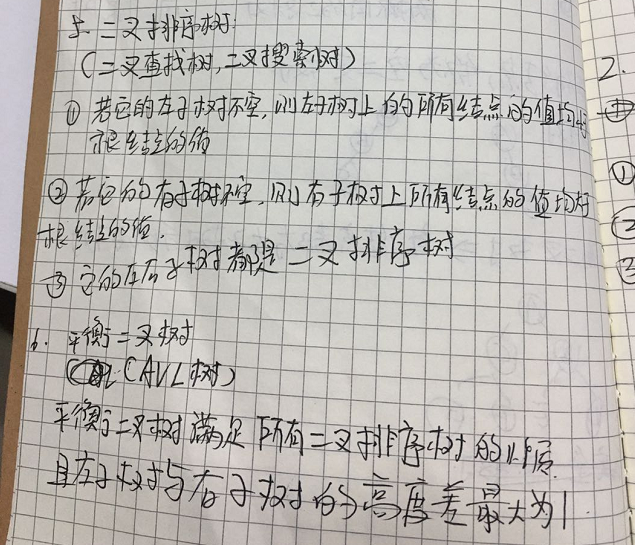 5. 二叉排序树:
(二叉查找树,二叉搜索树)
① 若它的左子树不空,则左子树上的所有结点的值均小于
根结点的值
② 若它的右子树不空,则右子树上所有结点的值均大于
根结点的值.
③ 它的左右子树都是二叉排序树
6. 平衡二叉树
(AVL树)
平衡二叉树满足所有二叉排序树的性质
且左子树与右子树的高度差最大为1
2.
①
②
③